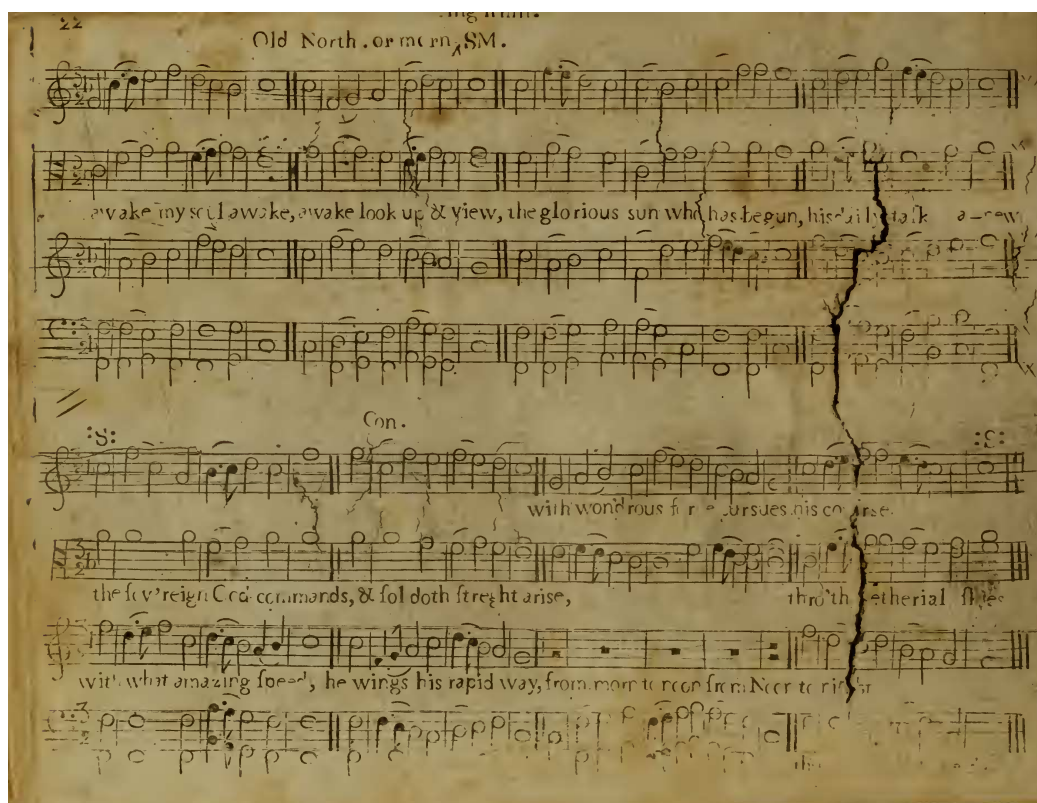 22
Old North . or morn SM.
awake my soul awake, awake look up & view, the glorious sun who has begun, his daily task a-new
:S: Con. :S:
with wondrous purſues his courſe
the ſov'reign God commands, & ſol doth ſtreght ariſe, thro' th etherial ſkies
with what amazing ſpeed, he wings his rapid way, from morn to noon from Noon to night